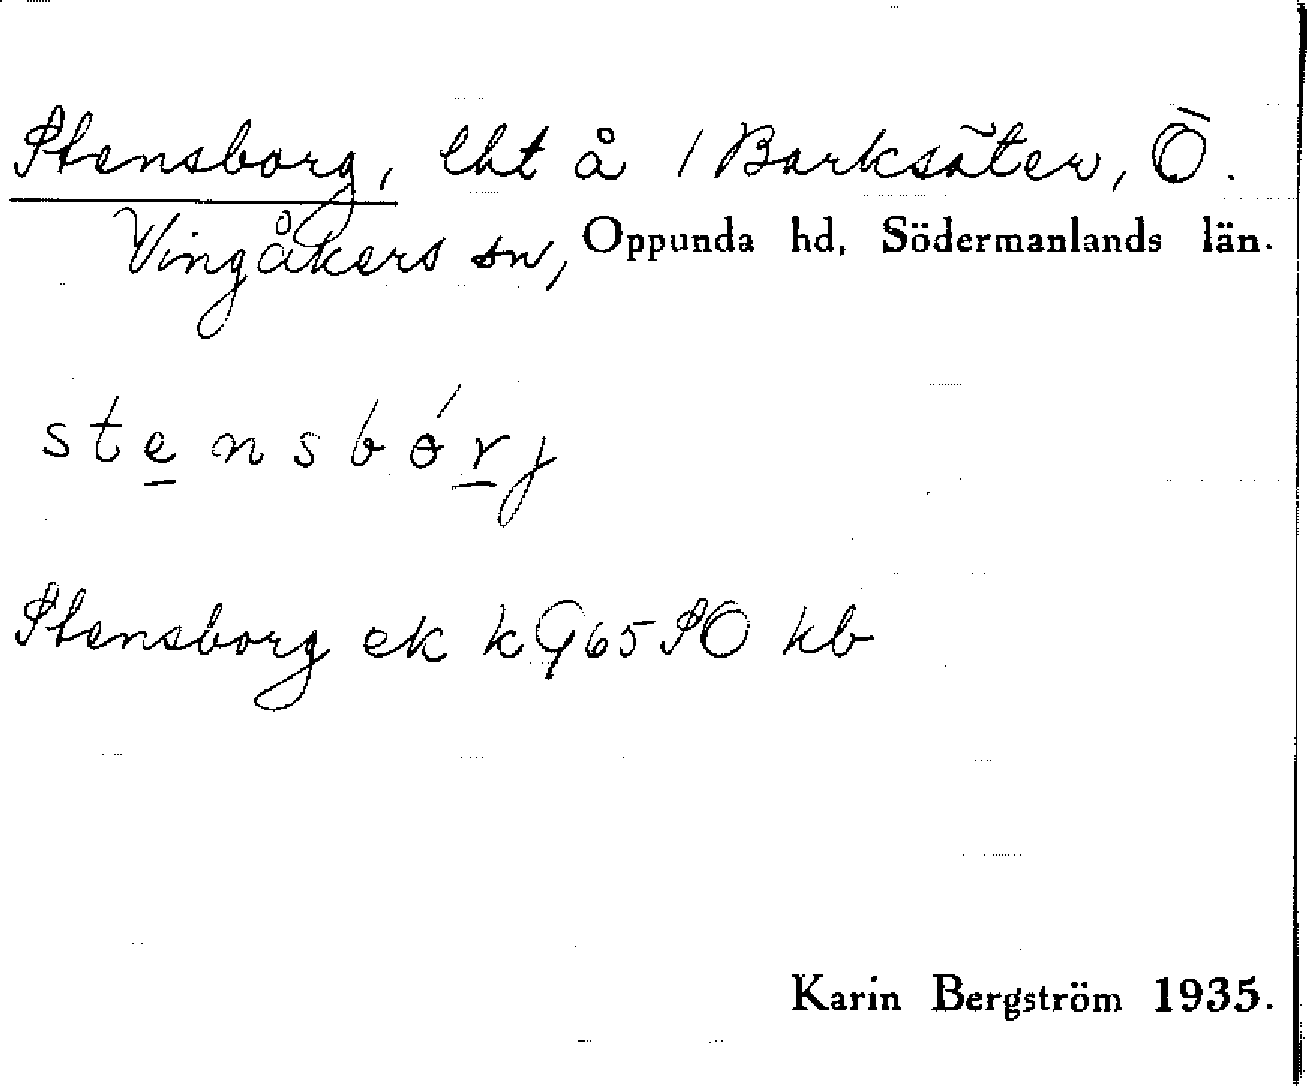 Stensborg, lht å 1 Barksäter, Ö.
Vingåkers sn, Oppunda hd, Södermanlands län.
stensbórj
Stensborg ek k G65SO kb
Karin Bergström 1935.